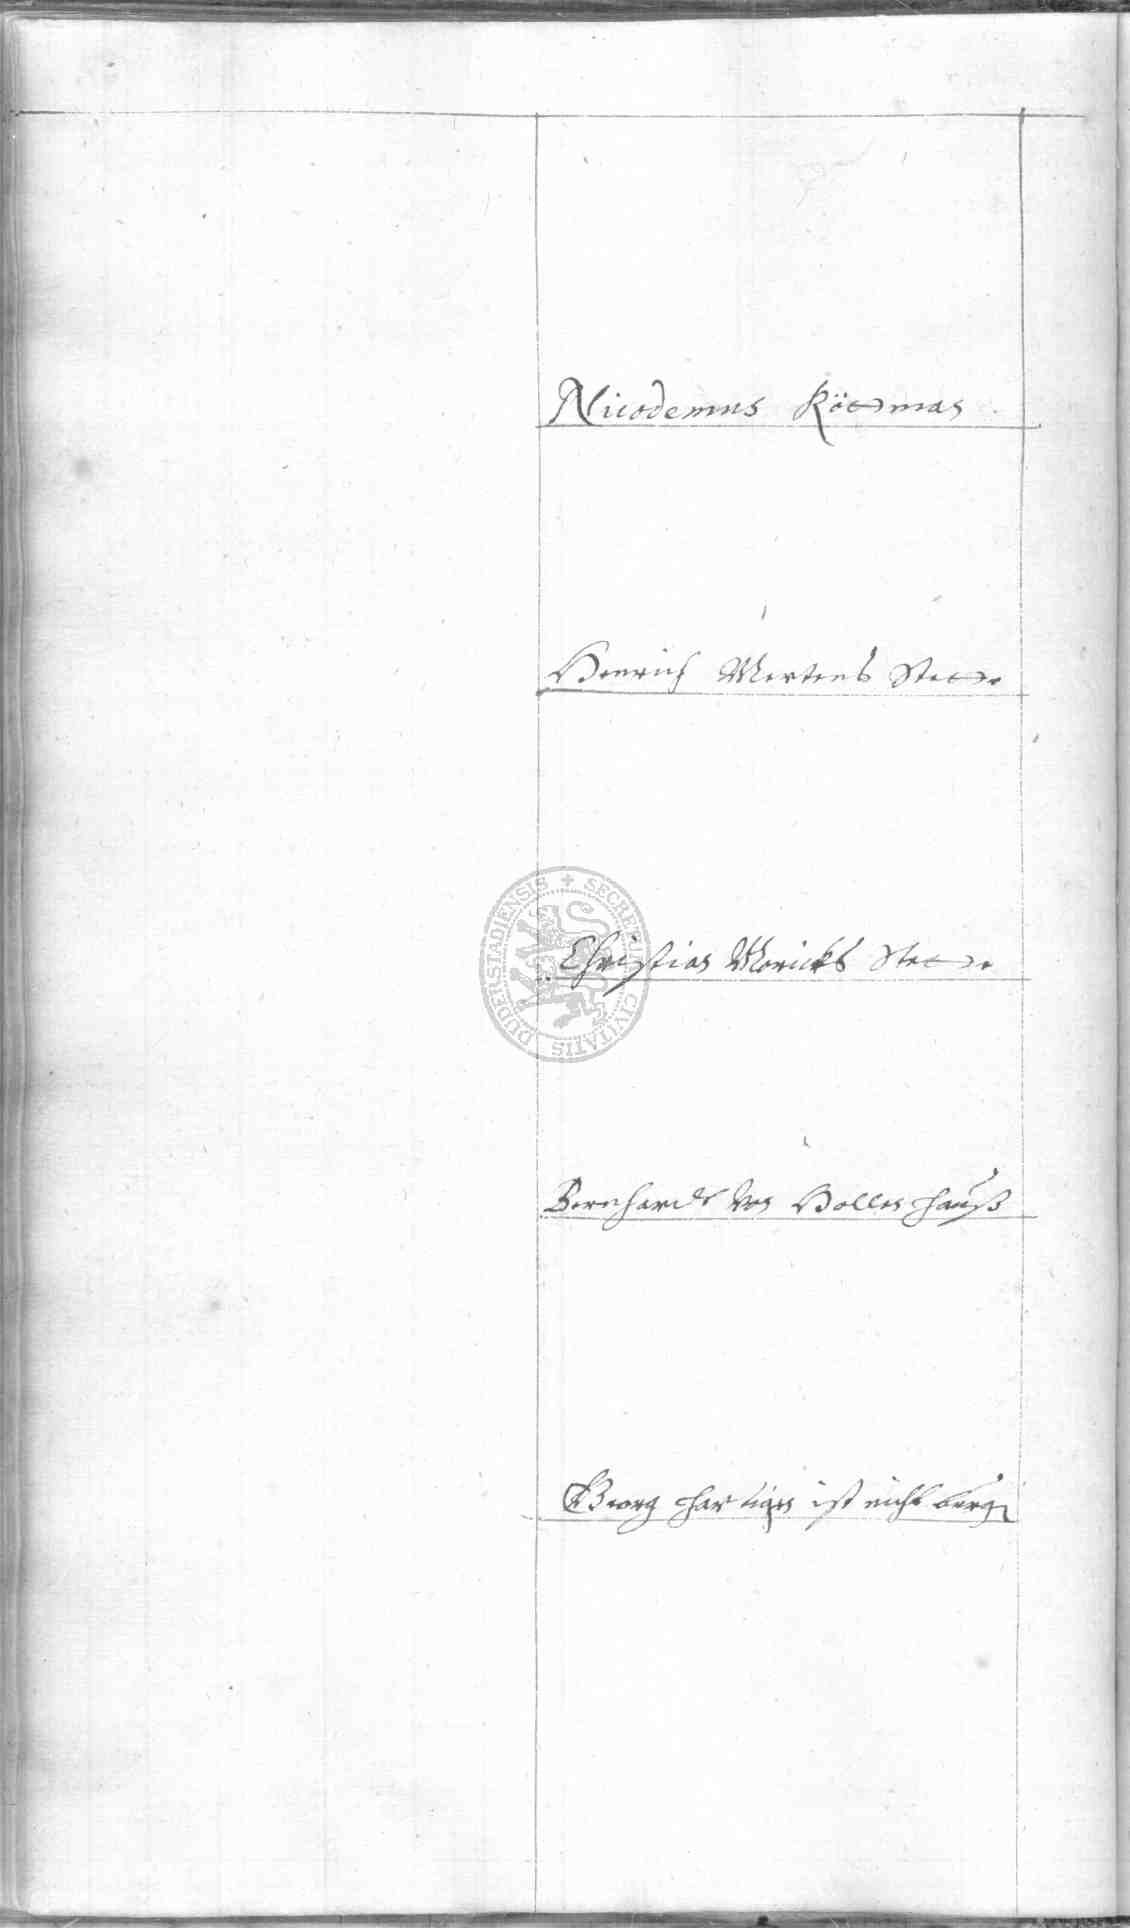 Nicodemus Köttman
Henrich Mertens Stette
Christian Moricks Stette
Bernhardt Von Hollen Hauß
Georg Hartigen ist nicht burger
SECRETUM CIVITATIS DUDERSTADIENSIS